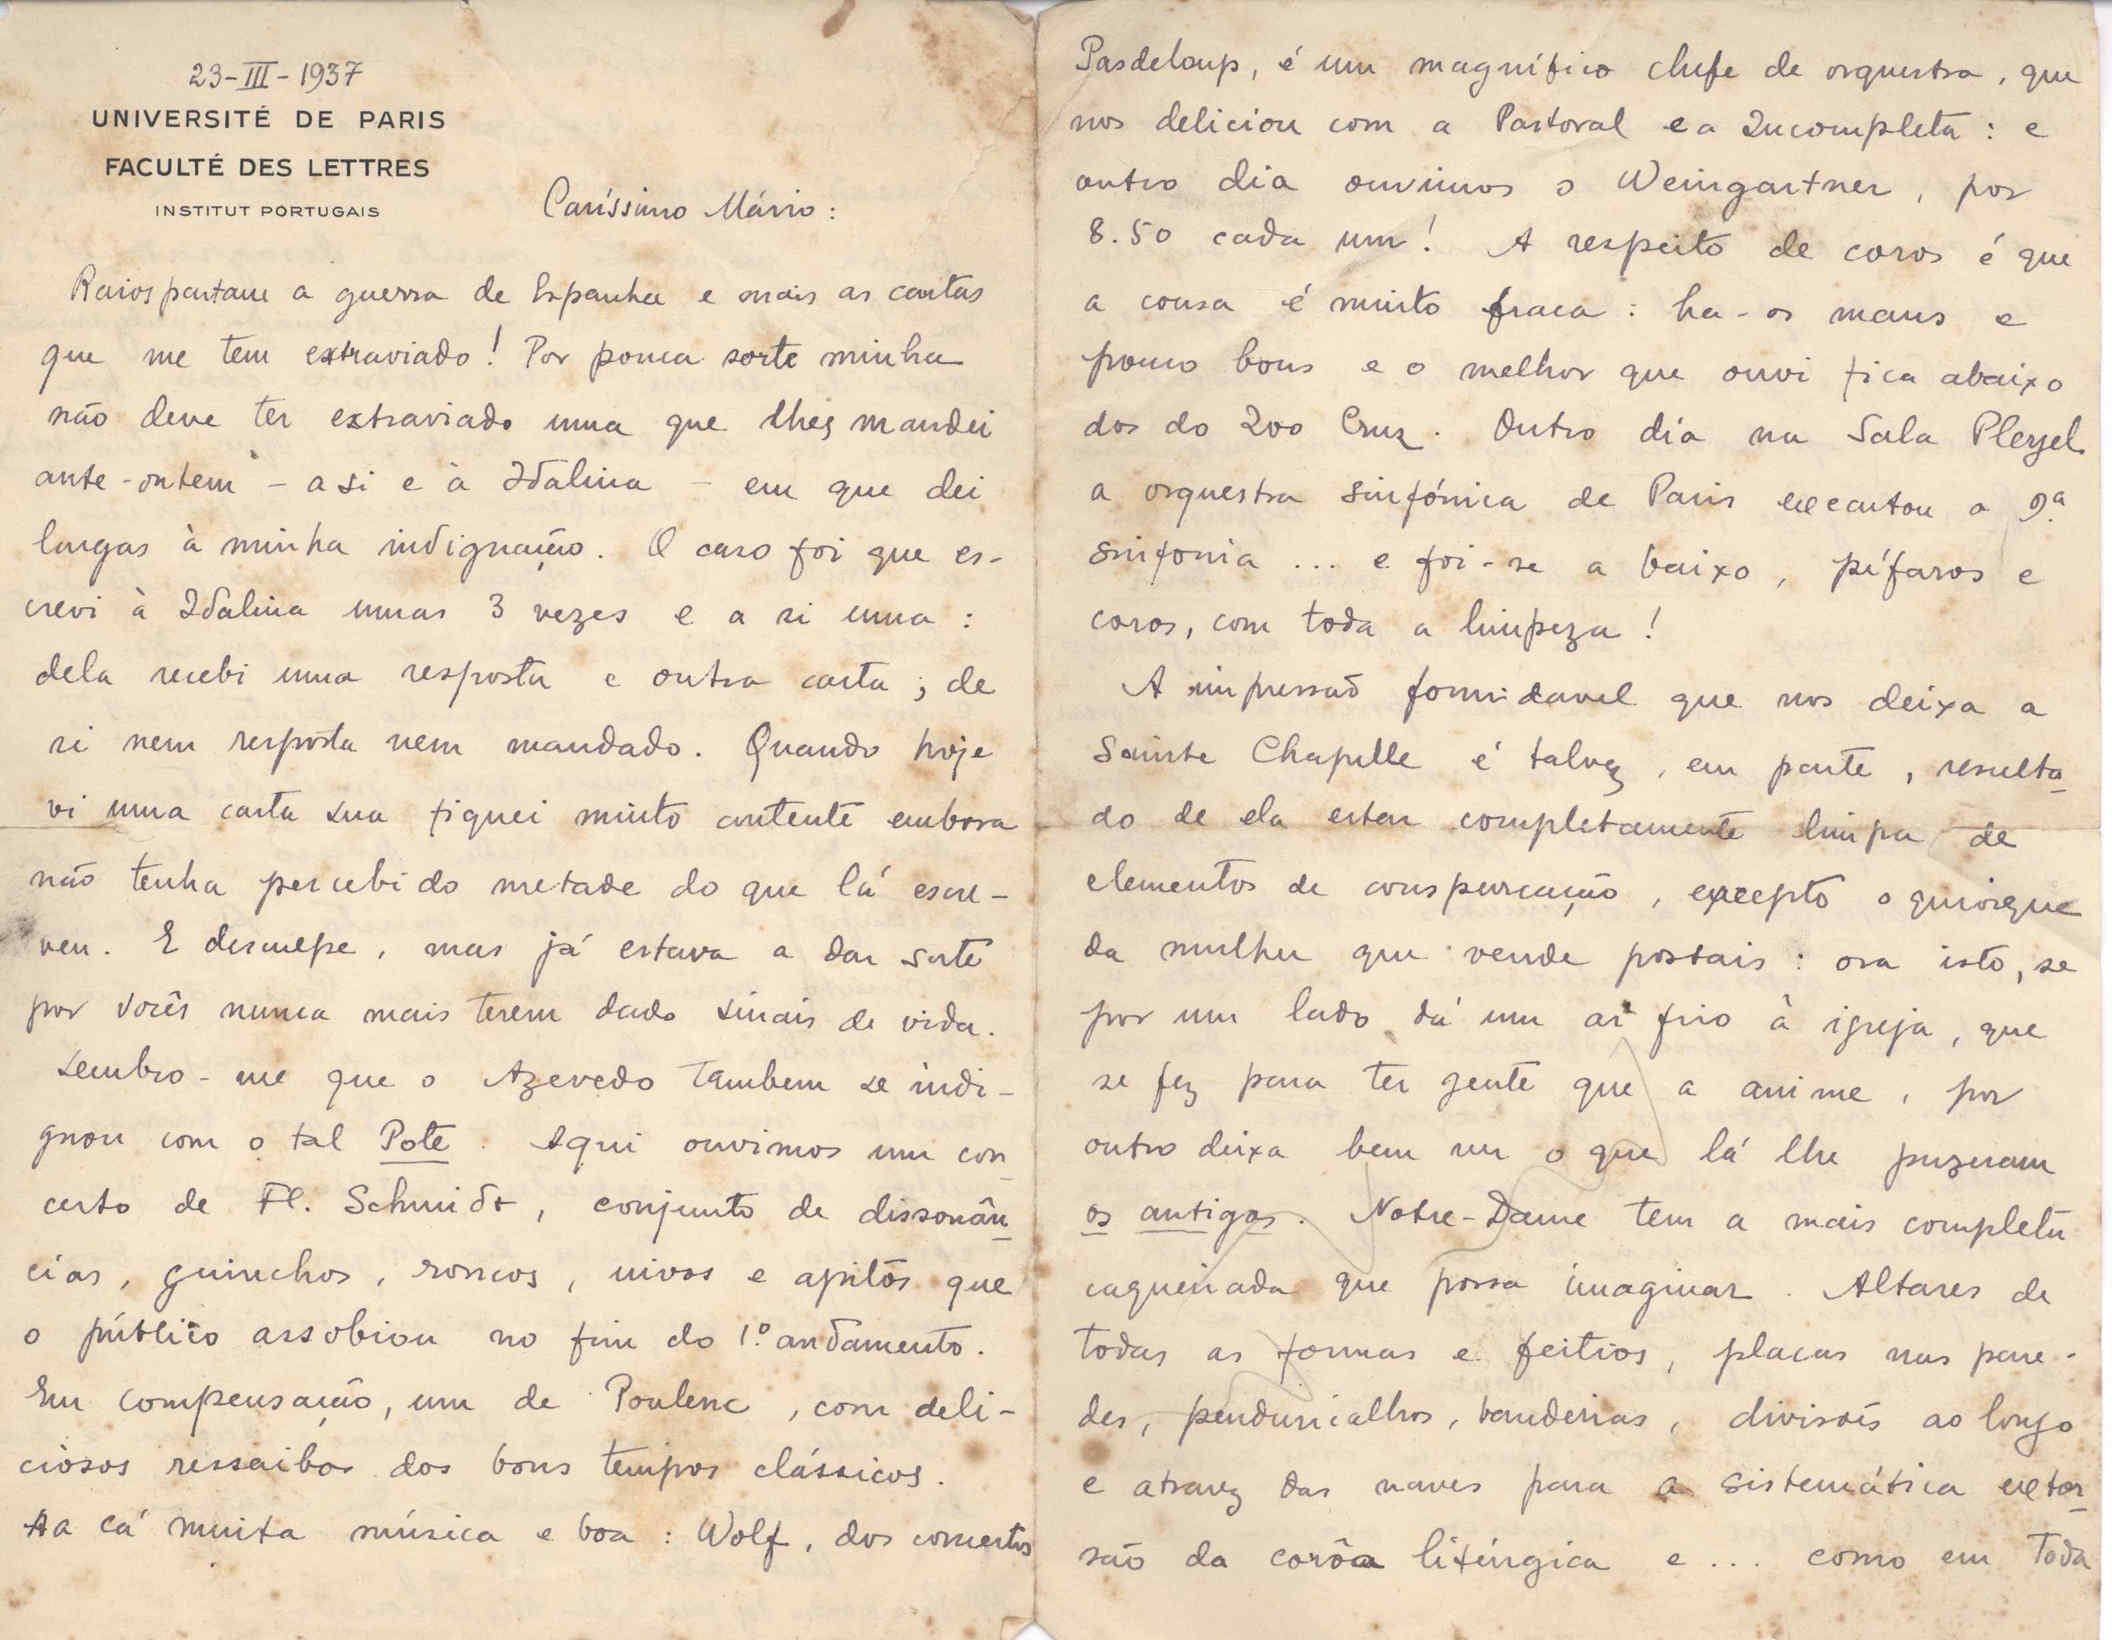 23-III-1937
UNIVERSITÉ DE PARIS
FACULTÉ DES LETTRES
INSTITUT PORTUGAIS
Caríssimo Mário:
Raios partam a guerra de Espanha e mais as cartas
que me tem extraviado! Por pouca sorte minha
não deve ter extraviado uma que lhes mandei
ante-ontem - a si e à Idalina - em que dei
largas à minha indignação. O caso foi que es-
crevi à Idalina umas 3 vezes e a si uma:
dela recebi uma resposta e outra carta; de
si nem resposta nem mandado. Quando hoje
vi uma carta sua fiquei muito contente embora
não tenha percebido metade do que lá escre-
veu. E desculpe, mas já estava a dar sorte
por vocês nunca mais terem dado sinais de vida.
Lembro-me que o Azevedo tambem se indi-
gnou com o tal Pote. Aqui ouvimos um con
certo de Fl. Schmidt, conjunto de dissonân
cias, guinchos, roncos, uivos e apitos que
o público assobiou no fim do 1º andamento.
Em compensação, um de Poulenc, com deli-
ciosos ressaibos dos bons tempos clássicos.
Ha cá muita música e boa: Wolf, dos concertos
Pasdeloup, é um magnífico chefe de orquestra, que
nos deliciou com a Pastoral e a Incompleta: e
outro dia ouvimos o Weingartner, por
8.50 cada um! A respeito de coros é que
a cousa é muito fraca: ha-os maus e
pouco bons e o melhor que ouvi fica abaixo
dos do Zoo Cruz. Outro dia na Sala Pleyel
a orquestra sinfónica de Paris executou a 9ª
sinfonia ... e foi-se a baixo, pífaros e
coros, com toda a limpeza!
A impressão formidavel que nos deixa a
Sainte Chapelle é talvez, em parte, resulta
do de ela estar completamente limpa de
elementos de conspurcação, excepto o quiosque
da mulher que vende postais: ora isto, se
por um lado dá um ar frio à igreja, que
se fez para ter gente que a anime, por
outro deixa bem ver o que lá lhe puzeram
os antigos. Notre-Dame tem a mais completa
caqueirada que possa imaginar. Altares de
todas as formas e feitios, placas nas pare-
des, penduricalhos, bandeiras, divisões ao longo
e atravez das naves para a sistemática extor
são da corôa litúrgica e ... como em toda